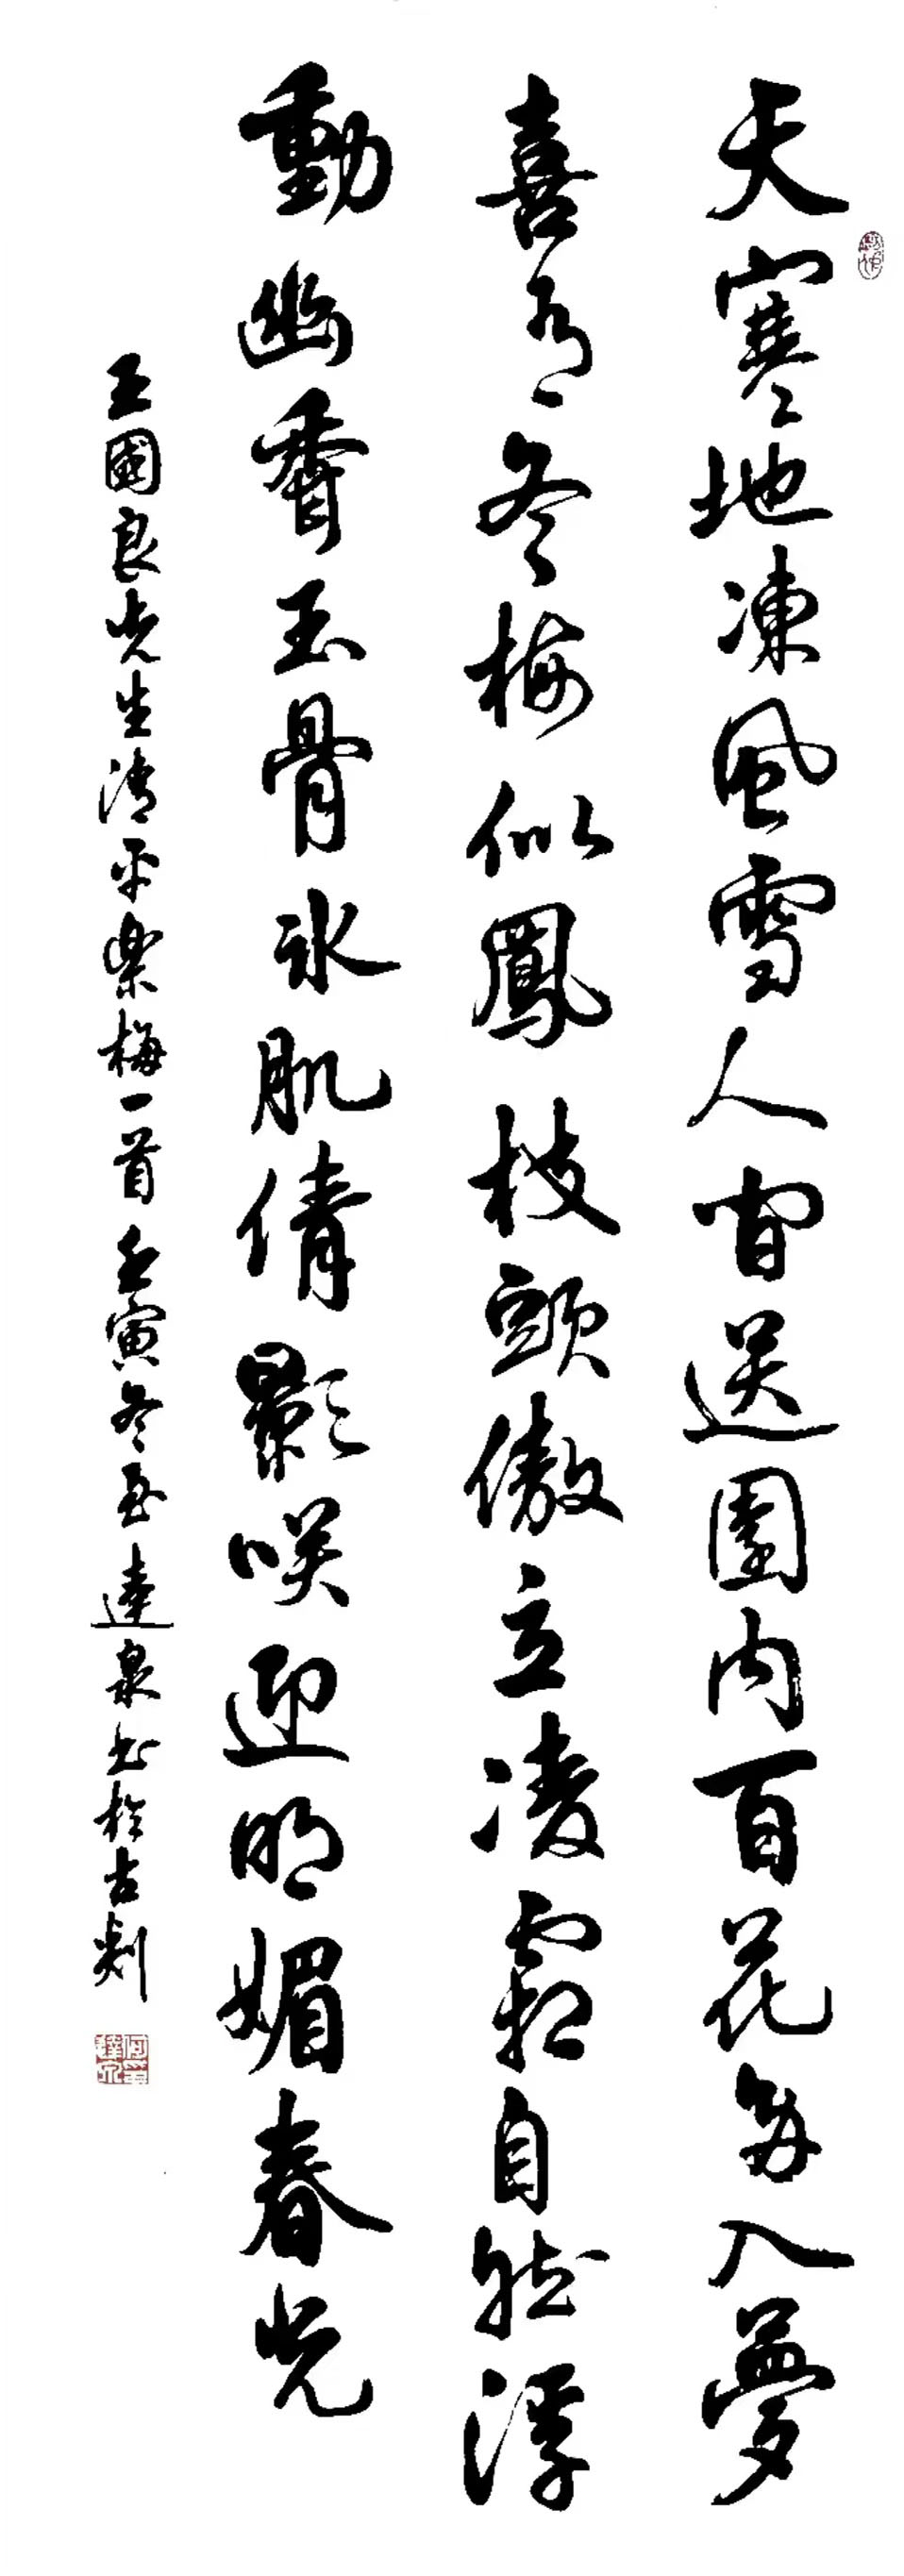 天寒地凍風雪人間送園内百花多入夢
喜有冬梅似鳳枝頭傲立凌霜自然浮
動幽香玉骨冰肌倩影咲迎明媚春光
王國良先生清平樂梅一首壬寅冬至達泉书於古剡